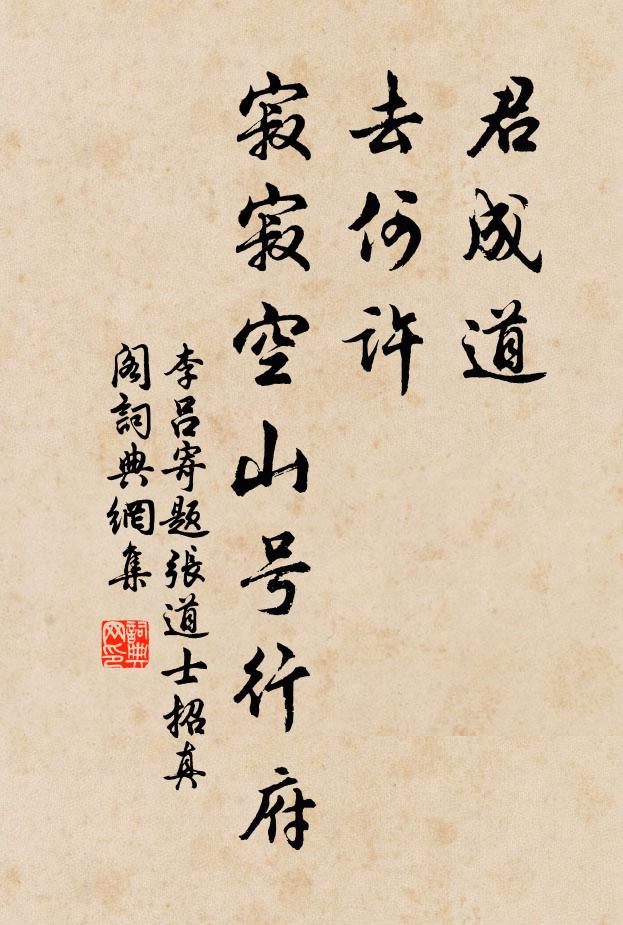 君成道
去何許
寂寂空山号行府
李吕寄题張道士招真
阁詞典網集
詞典
网印